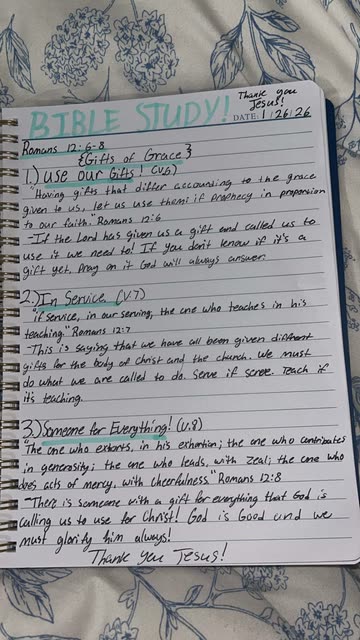 Thank you
Jesus!
BIBLE STUDY!
DATE: 1/26/26
Romans 12:6-8
{Gifts of Grace}
1.) use our Gifts! (v.6)
"Having gifts that differ according to the grace
given to us, let us use them: if prophecy in proportion
to our faith." Romans 12:6
-If the Lord has given us a gift and called us to
use it we need to! If you don't know if it's a
gift yet. Pray on it God will always answer.
2.) In Service (v.7)
"if service, in our serving, the one who teaches in his
teaching" Romans 12:7
-This is saying that we have all been given different
gifts for the body of Christ and the church. We must
do what we are called to do. Serve if serve. Teach if
it's teaching.
3.) Someone for Everything! (v.8)
"The one who exhorts, in his exhortion; the one who contributes
in generosity; the one who leads, with zeal; the one who
does acts of mercy, with cheerfulness." Romans 12:8
-There is someone with a gift for everything that God is
calling us to use for Christ! God is Good and we
must glorify him always!
Thank you Jesus!